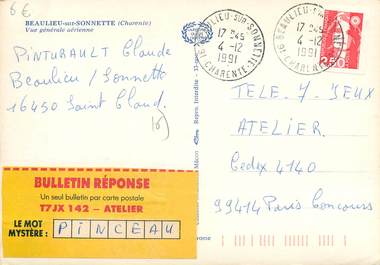 6€
BEAULIEU-sur-SONNETTE (Charente)
Vue générale aérienne
PINTURAULT Claude
Beaulieu / Sonnette
16450 Saint Claud
16)
BEAULIEU-SUR-SONNETTE
17 H45
4-12
1991
16 CHARENTE
BEAULIEU-SUR-SONNETTE
17 H45
4-12
1991
16 CHARENTE
2,50
TELE 7 JEUX
ATELIER
Cedex 4140
99414 Paris Concours
BULLETIN RÉPONSE
Un seul bulletin par carte postale
T7JX 142 – ATELIER
LE MOT
MYSTÈRE :
PINCEAU